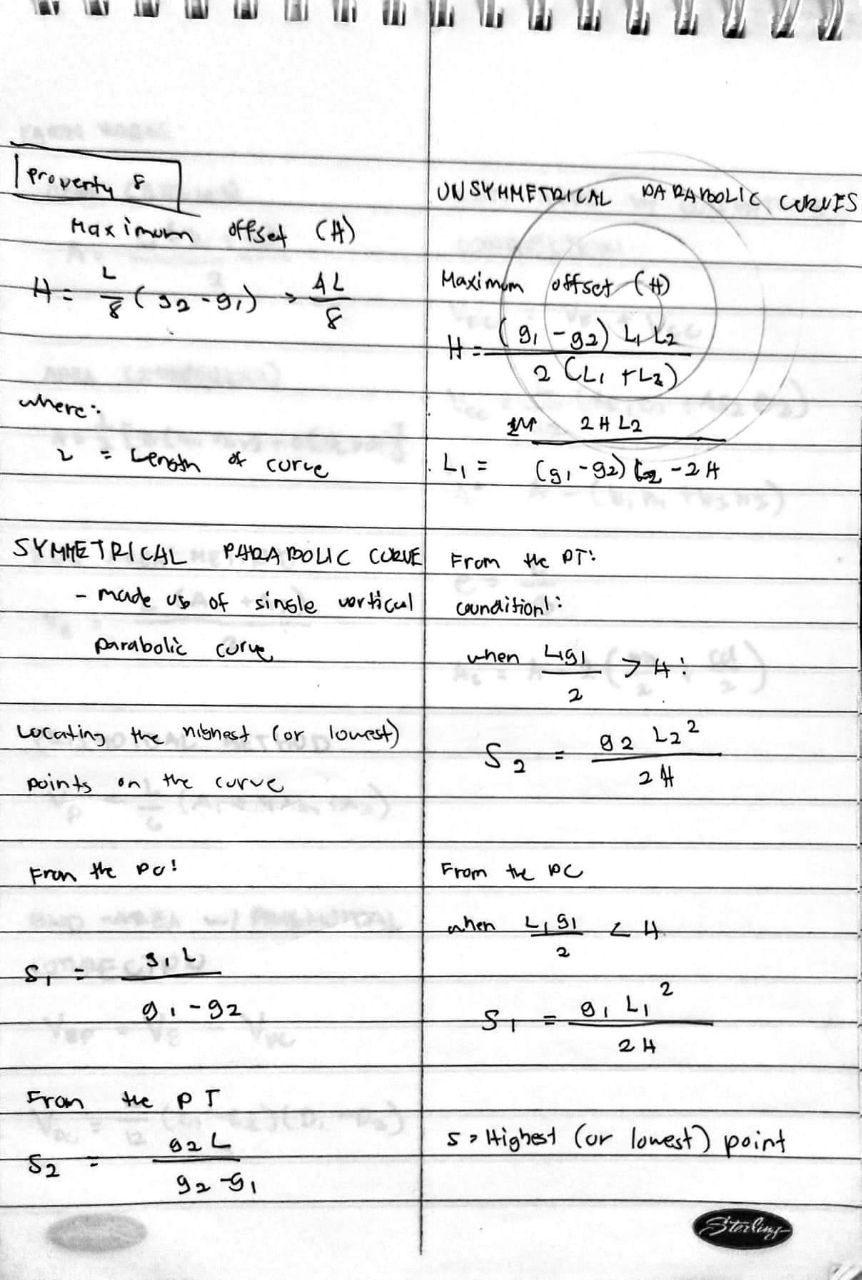 Property 8
Maximum offset (H)
H = L/8 (g2 - g1) > AL/8
where:
L = Length of curve
SYMMETRICAL PARABOLIC CURVE
- made up of single vertical
parabolic curve
Locating the highest (or lowest)
points on the curve
From the PC:
S1 = g1 L / g1 - g2
From the PT
S2 = g2 L / g2 - g1
UNSYMMETRICAL PARABOLIC CURVES
Maximum offset (H)
H = (g1 - g2) L1 L2 / 2 (L1 + L2)
L1 = 2HL2 / (g1 - g2) L2 - 2H
From the PT:
condition:
when L1g1 / 2 > H:
S2 = g2 L2² / 2H
From the PC
when L1g1 / 2 < H
S1 = g1 L1² / 2H
S = Highest (or lowest) point
Sterling